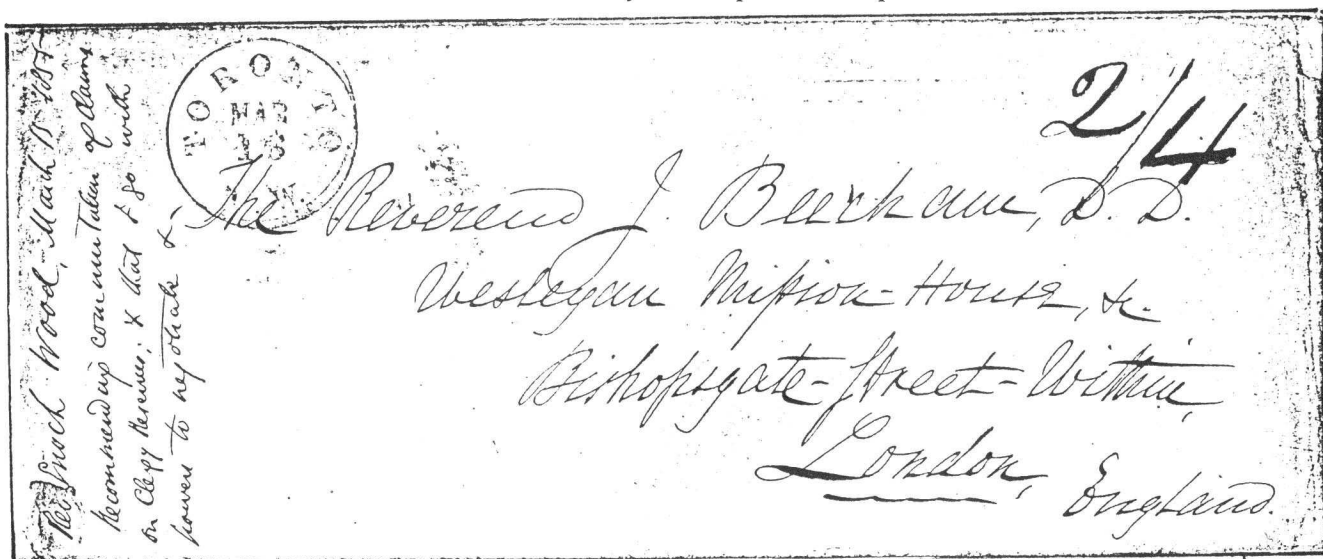 Rev Enoch Wood, March 15 1855
Recommending commutation of claims
on Clergy Reserves; & that I go with
powers to negotiate &
TORONTO
MAR
2/4
The Reverend J. Beecham, D.D.
Wesleyan Mission-House, &c.
Bishopsgate-Street-Within,
London, England.